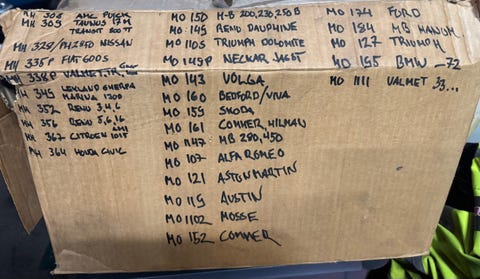 MH 308 AMC PULSE
MH 309 TAUNUS 17M
TRANSIT 800 TT
MH 329/PH2870 NISSAN
MH 335P FIAT 600S
MH 338P VALMET,
MH 345 LEYLAND SHERPA
MARINA 1700
MH 352 RENU 3,4,6
MH 356 RENU 5,6,16
MH 362 CITROEN 1015
MH 364 HONDA CIVIC
MO 150 M-B 200,230,250 B
MO 149 RENU DAUPHINE
MO 110S TRIUMPH DOLOMITE
MO 145P NECKAR JAGST
MO 143 VOLGA
MO 160 BEDFORD/VIVA
MO 159 SKODA
MO 161 COMMER, HILMAN
MO 1147 MB 280,450
MO 107 ALFA ROMEO
MO 121 ASTON MARTIN
MO 119 AUSTIN
MO 1102 MOSSE
MO 152 COMMER
MO 174 FORD
MO 184 MB MANOM
MO 127 TRIUMPH
MO 155 BMW -72
MO 1111 VALMET 33...